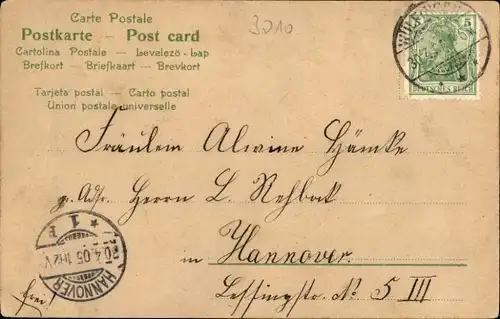 Carte Postale
Postkarte — Post card
Cartolina Postale — Levelező-Lap
Brefkort — Briefkaart — Brevkort
Tarjeta postal — Carto postal
Union postale universelle
3210
5
DEUTSCHES REICH
Fräulein Alwine Hämke
p. Adr. Herrn L. Rehbock
in Hannover.
Lessingstr. No. 5 III
frei!
HANNOVER
20.4.05. 11-12 V.
* 1 F